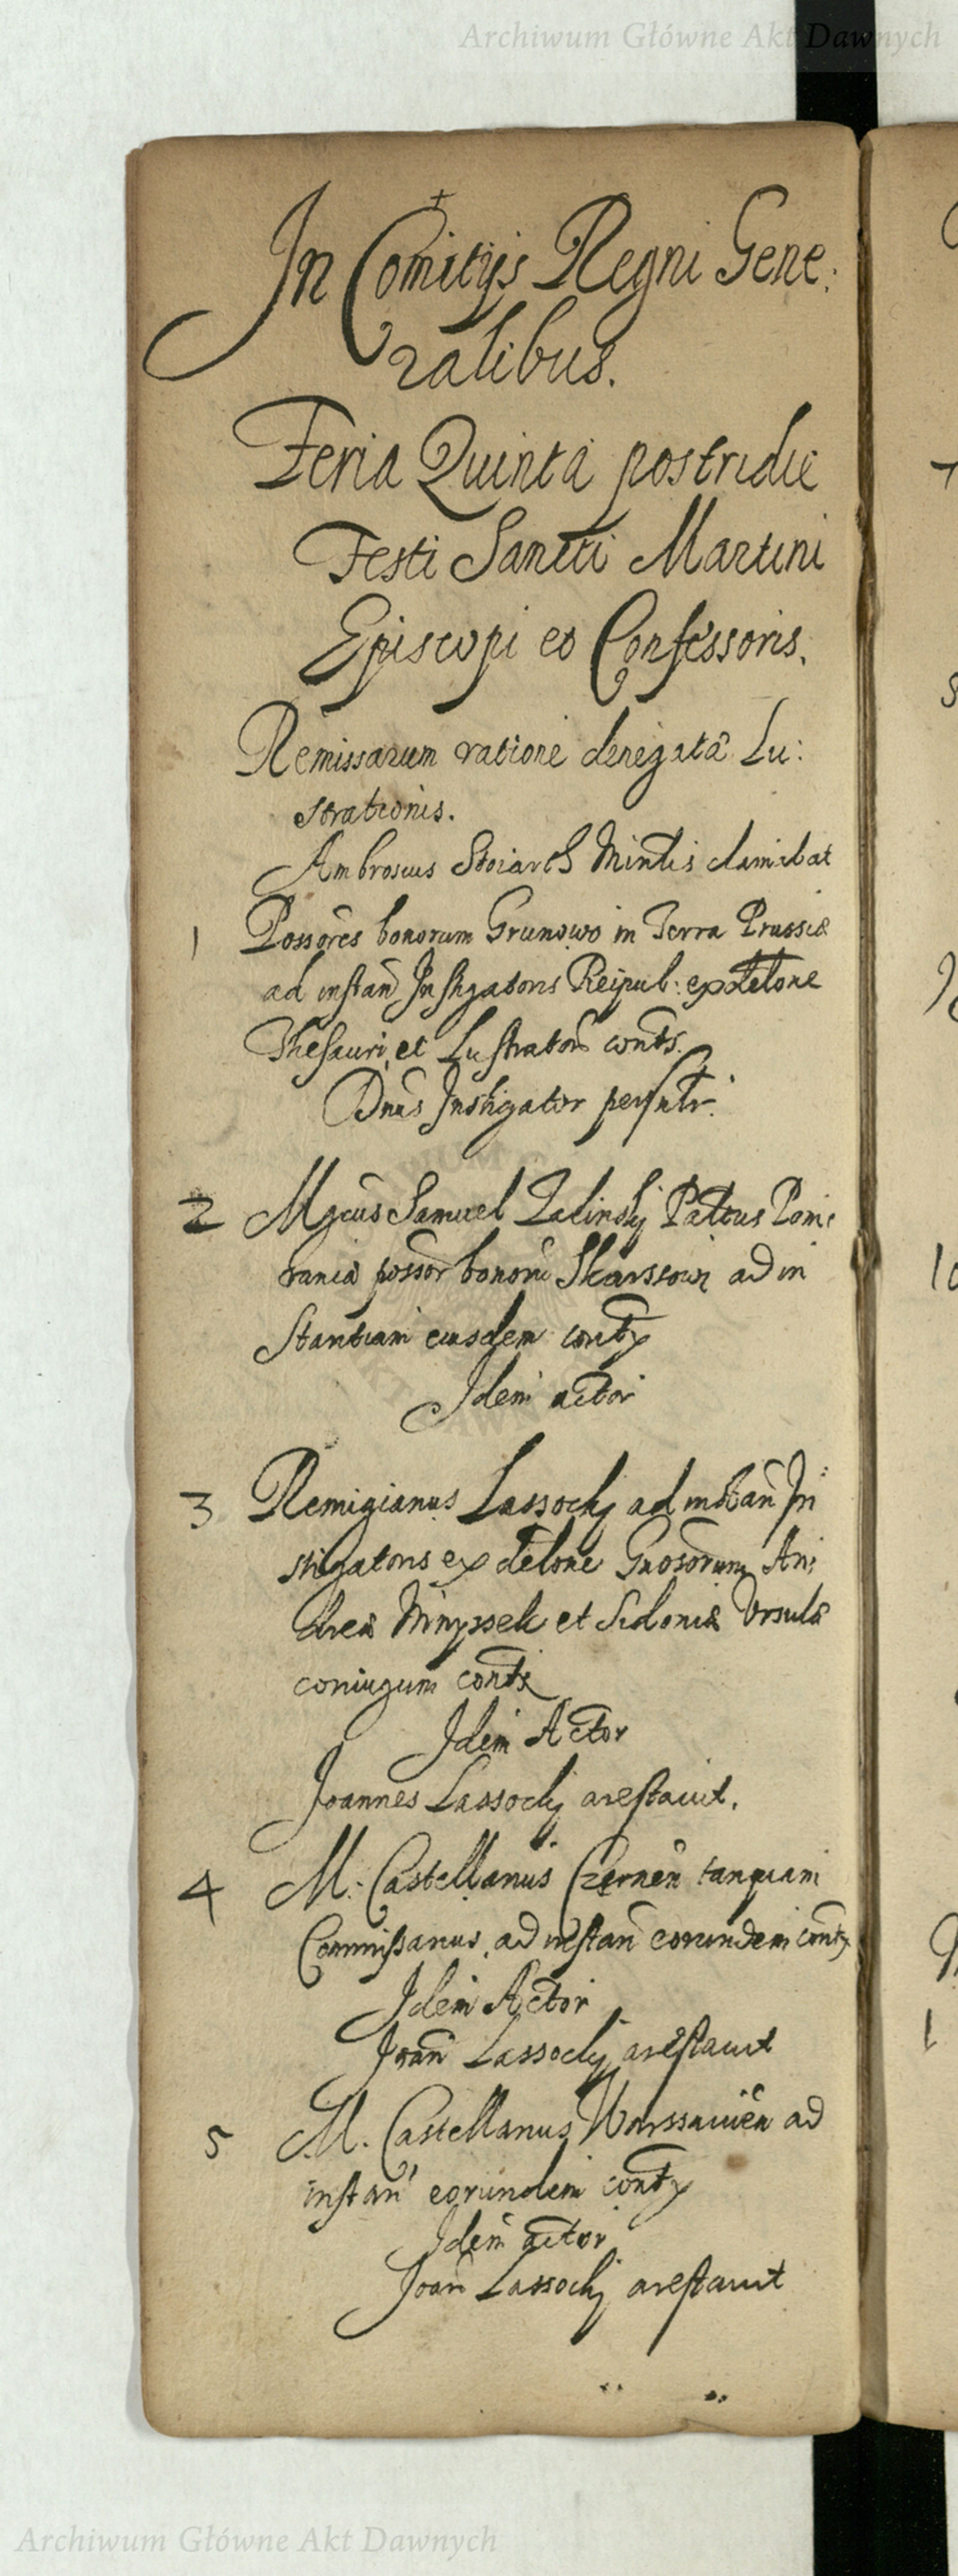 Archiwum Główne Akt Dawnych
In Comitijs Regni Gene:
ralibus.
Feria Quinta postridie
Festi Sancti Martini
Episcopi et Confessoris.
Remissarum ratione denegatæ Lu:
strationis.
Ambrosius
1 Possores bonorum Grunowo in Terra Prussiæ
ad instañ Instigatoris Reipub: ex delone
Thesauri et Lustratorũ conts.
Dnus Instigator
2 Mgcus Samuel Zalinskij Palatus Pome
raniæ possor bonorũ Skarssowi ad in
stantiam eiusdem contx
Idem actor
3 Remigianus Lassockj ad instañ In
stigatoris ex delone Gnosorum An:
dreæ et Sidoniæ Vrsulæ
coniugum contx
Idem Actor
Joannes Lassockj arestauit.
4 M. Castellanus Czerneñ tanquam
Commissarius, ad instañ eorundem contx
Idem Actor
Joañ Lassockj arestauit
5 M. Castellanus Warssauieñ ad
instañ eorundem contx
Idem actor
Joañ Lassockj arestauit
Archiwum Główne Akt Dawnych